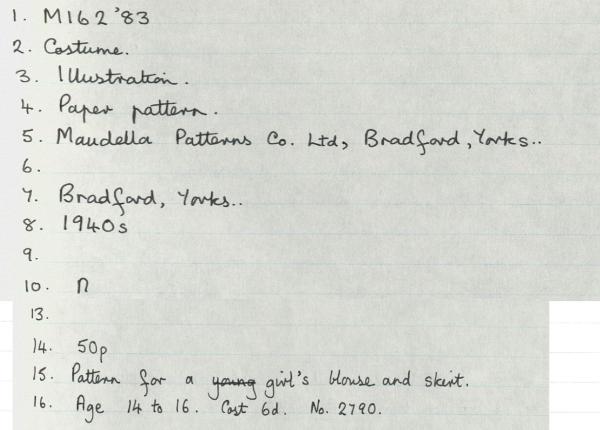 1. M162 '83
2. Costume.
3. Illustration.
4. Paper pattern.
5. Maudella Patterns Co. Ltd, Bradford, Yorks..
6.
7. Bradford, Yorks..
8. 1940s
9.
10. n
13.
14. 50p
15. Pattern for a young girl's blouse and skirt.
16. Age 14 to 16. Cost 6d. No. 2790.